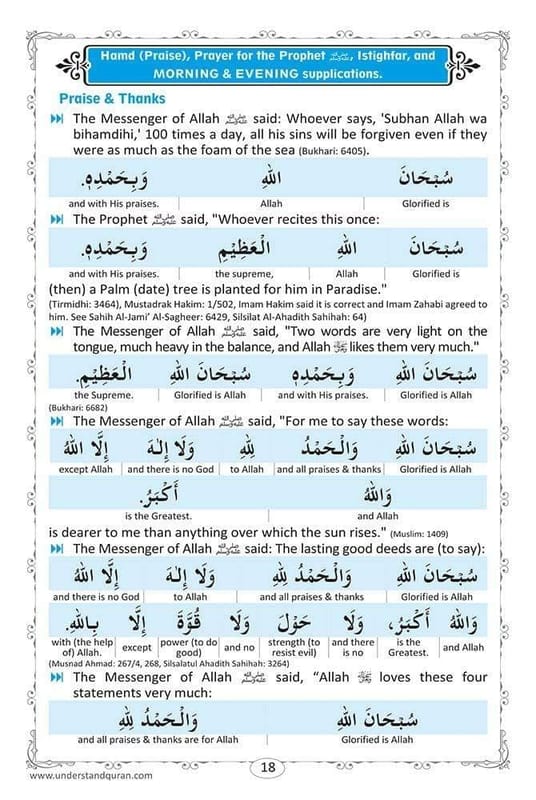 Hamd (Praise), Prayer for the Prophet ﷺ, Istighfar, and
MORNING & EVENING supplications.
Praise & Thanks
The Messenger of Allah ﷺ said: Whoever says, 'Subhan Allah wa
bihamdihi,' 100 times a day, all his sins will be forgiven even if they
were as much as the foam of the sea (Bukhari: 6405).
سُبْحَانَ اللهِ وَبِحَمْدِهٖ.
Glorified is Allah and with His praises.
The Prophet ﷺ said, "Whoever recites this once:
سُبْحَانَ اللهِ الْعَظِيْمِ وَبِحَمْدِهٖ.
Glorified is Allah the supreme, and with His praises.
(then) a Palm (date) tree is planted for him in Paradise."
(Tirmidhi: 3464), Mustadrak Hakim: 1/502, Imam Hakim said it is correct and Imam Zahabi agreed to
him. See Sahih Al-Jami’ Al-Sagheer: 6429, Silsilat Al-Ahadith Sahihah: 64)
The Messenger of Allah ﷺ said, "Two words are very light on the
tongue, much heavy in the balance, and Allah ﷻ likes them very much."
سُبْحَانَ اللهِ وَبِحَمْدِهٖ سُبْحَانَ اللهِ الْعَظِيْمِ.
Glorified is Allah and with His praises. Glorified is Allah the Supreme.
(Bukhari: 6682)
The Messenger of Allah ﷺ said, "For me to say these words:
سُبْحَانَ اللهِ وَالْحَمْدُ لِلهِ وَلَا إِلٰهَ إِلَّا اللهُ
Glorified is Allah and all praises & thanks to Allah and there is no God except Allah
وَاللهُ أَكْبَرُ.
and Allah is the Greatest.
is dearer to me than anything over which the sun rises." (Muslim: 1409)
The Messenger of Allah ﷺ said: The lasting good deeds are (to say):
سُبْحَانَ اللهِ وَالْحَمْدُ لِلهِ وَلَا إِلٰهَ إِلَّا اللهُ
Glorified is Allah and all praises & thanks to Allah and there is no God
وَاللهُ أَكْبَرُ، وَلَا حَوْلَ وَلَا قُوَّةَ إِلَّا بِاللهِ.
and Allah is the Greatest. and there is no strength (to resist evil) and no power (to do good) except with (the help of) Allah.
(Musnad Ahmad: 267/4, 268, Silsalatul Ahadith Sahihah: 3264)
The Messenger of Allah ﷺ said, “Allah ﷻ loves these four
statements very much:
سُبْحَانَ اللهِ وَالْحَمْدُ لِلهِ
Glorified is Allah and all praises & thanks are for Allah
18
www.understandquran.com